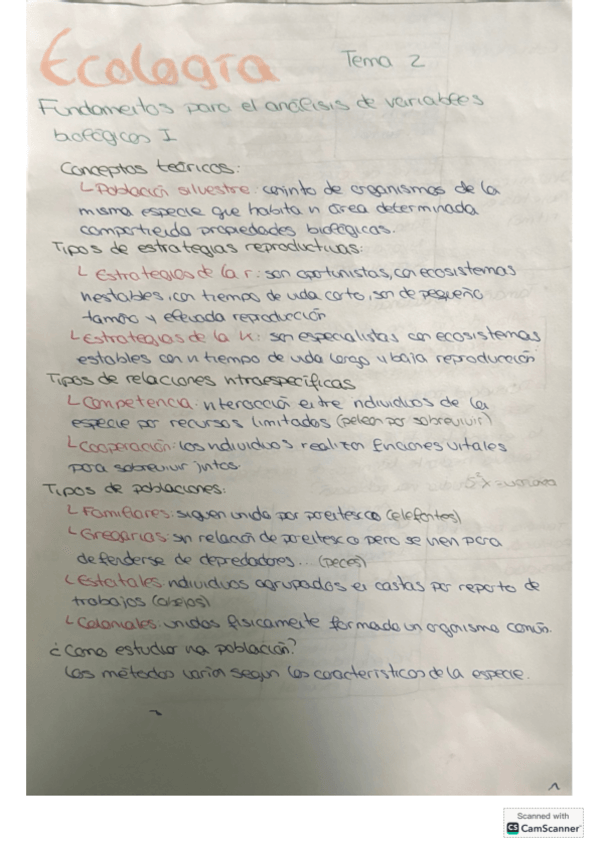 Ecología Tema 2
Fundamentos para el análisis de variables
biológicas I
Conceptos teóricos:
└ Población silvestre: conjunto de organismos de la
misma especie que habita n área determinada
compartiendo propiedades biológicas.
Tipos de estrategias reproductivas:
└ Estrategias de la r: son oportunistas, con ecosistemas
inestables, con tiempo de vida corto, son de pequeño
tamaño y elevada reproducción
└ Estrategias de la K: son especialistas con ecosistemas
estables con n tiempo de vida largo y baja reproducción
Tipos de relaciones intraespecíficas
└ Competencia: interacción entre individuos de la
especie por recursos limitados (pelean por sobrevivir)
└ Cooperación: los individuos realizan funciones vitales
para sobrevivir juntos.
Tipos de poblaciones:
└ Familiares: siguen unida por parentesco (elefantes)
└ Gregarias: sin relación de parentesco pero se unen para
defenderse de depredadores... (peces)
└ Estatales: individuos agrupados en castas por reparto de
trabajos (abejas)
└ Coloniales: unidos físicamente formando un organismo común.
¿Como estudiar una población?
Los métodos varían según las características de la especie.
1
Scanned with
CS CamScanner